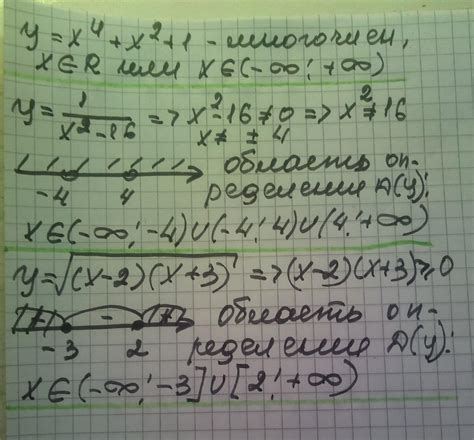 y = x⁴ + x² + 1 - многочлен,
x ∈ R или x ∈ (-∞; +∞)
y = 1/(x² - 16) => x² - 16 ≠ 0 => x² ≠ 16
x ≠ ± 4
-4 4 область оп-
ределения Д(y):
x ∈ (-∞; -4) ∪ (-4; 4) ∪ (4; +∞)
y = √((x-2)(x+3)) => (x-2)(x+3) ≥ 0
+ - + область оп-
-3 2 ределения Д(y):
x ∈ (-∞; -3] ∪ [2; +∞)